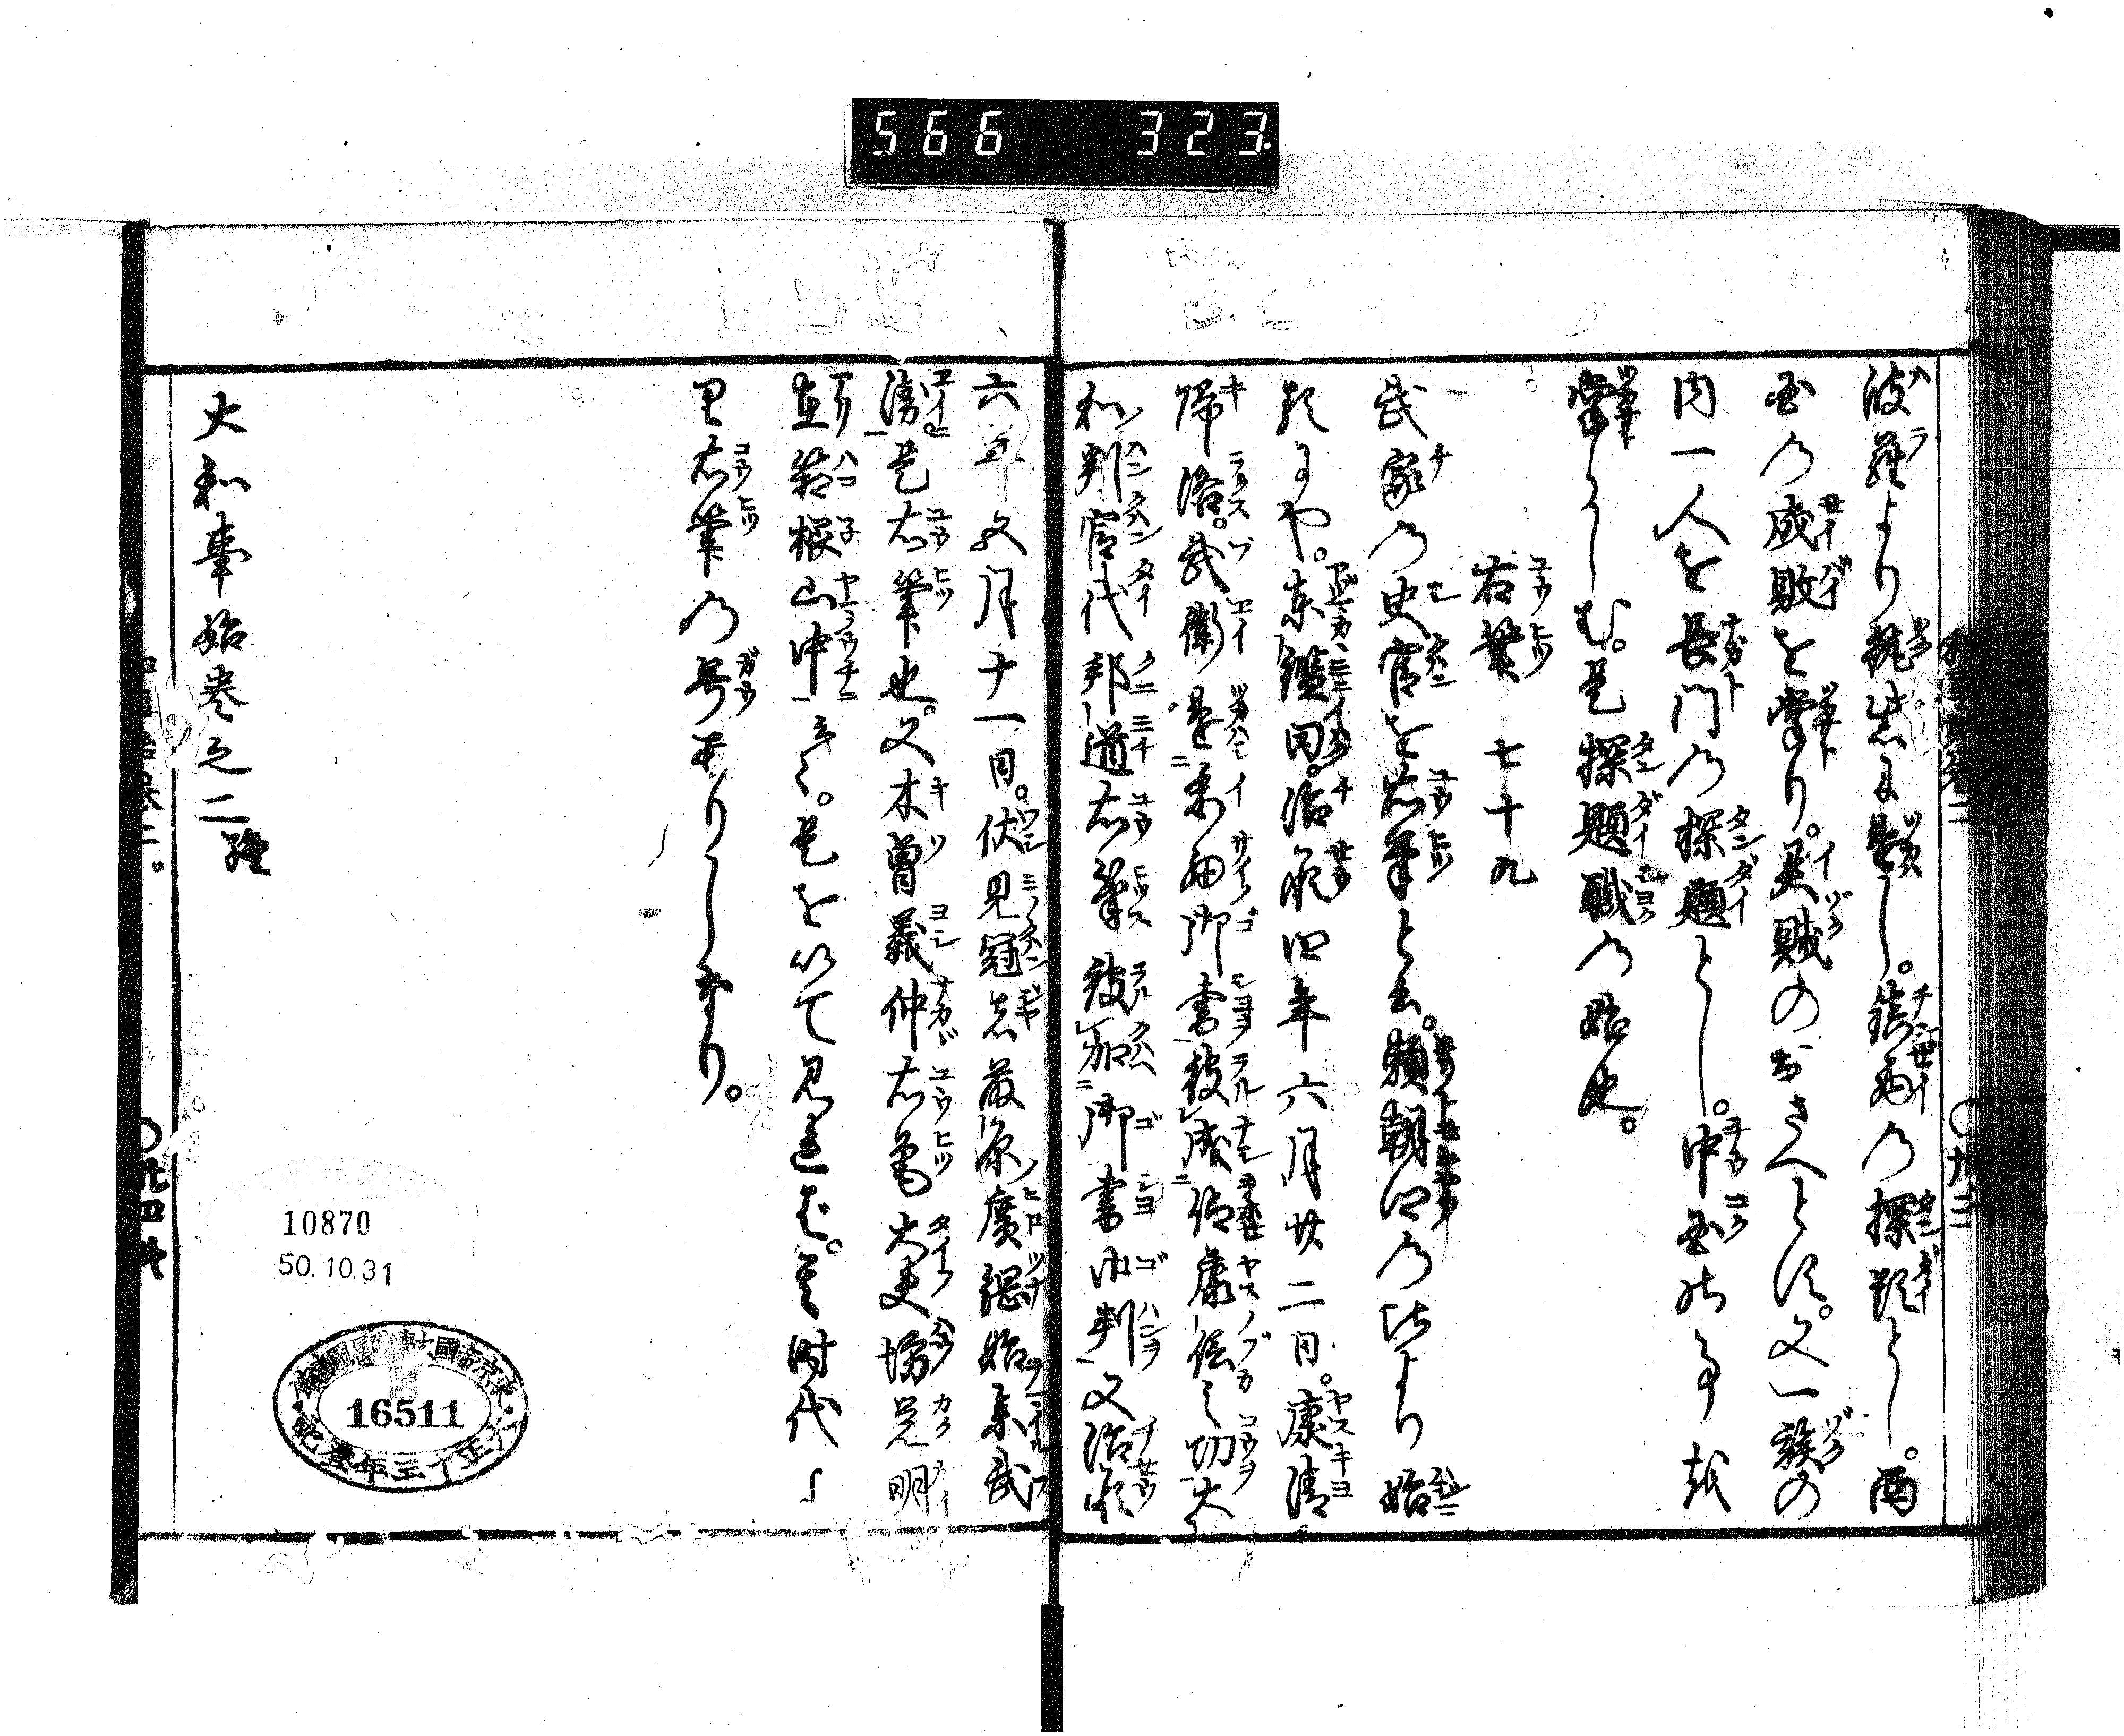 566 323
波羅より筑紫に點し。鎮西の探題とし。西
国の成敗を掌り。異賊のおさへとす。又一族の
内一人を長門の探題とし。中国の
掌らしむ。是探題職の始也。
右筆 七十九
武家の史官を右筆と云。頼朝卿の時より始
にや。東鑑曰。治承四年六月廿二日。康清
帰洛。武衛遣委細御書被感仰康信之功大
和判官代邦道右筆被加御書御判又治承
六年五月十一日。伏見冠者藤原廣綱始参武
衛是右筆也。又木曽義仲右筆大夫坊覚明
在箱根山中云云。是を以て見れば。其時代よ
り右筆の号ありしなり。
大和事始巻之二終
10870
50.10.31
16511